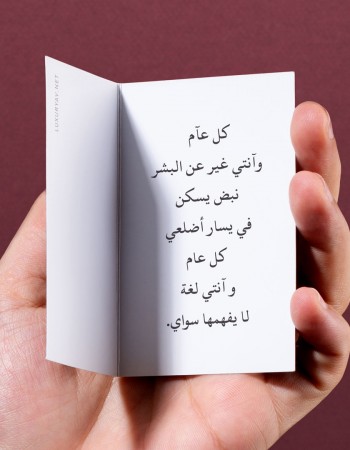 LUXURYAY.NET
كل عآم
وآنتي غير عن البشر
نبض يسكن
في يسار أضلعي
كل عام
و آنتي لغة
لا يفهمها سواي.